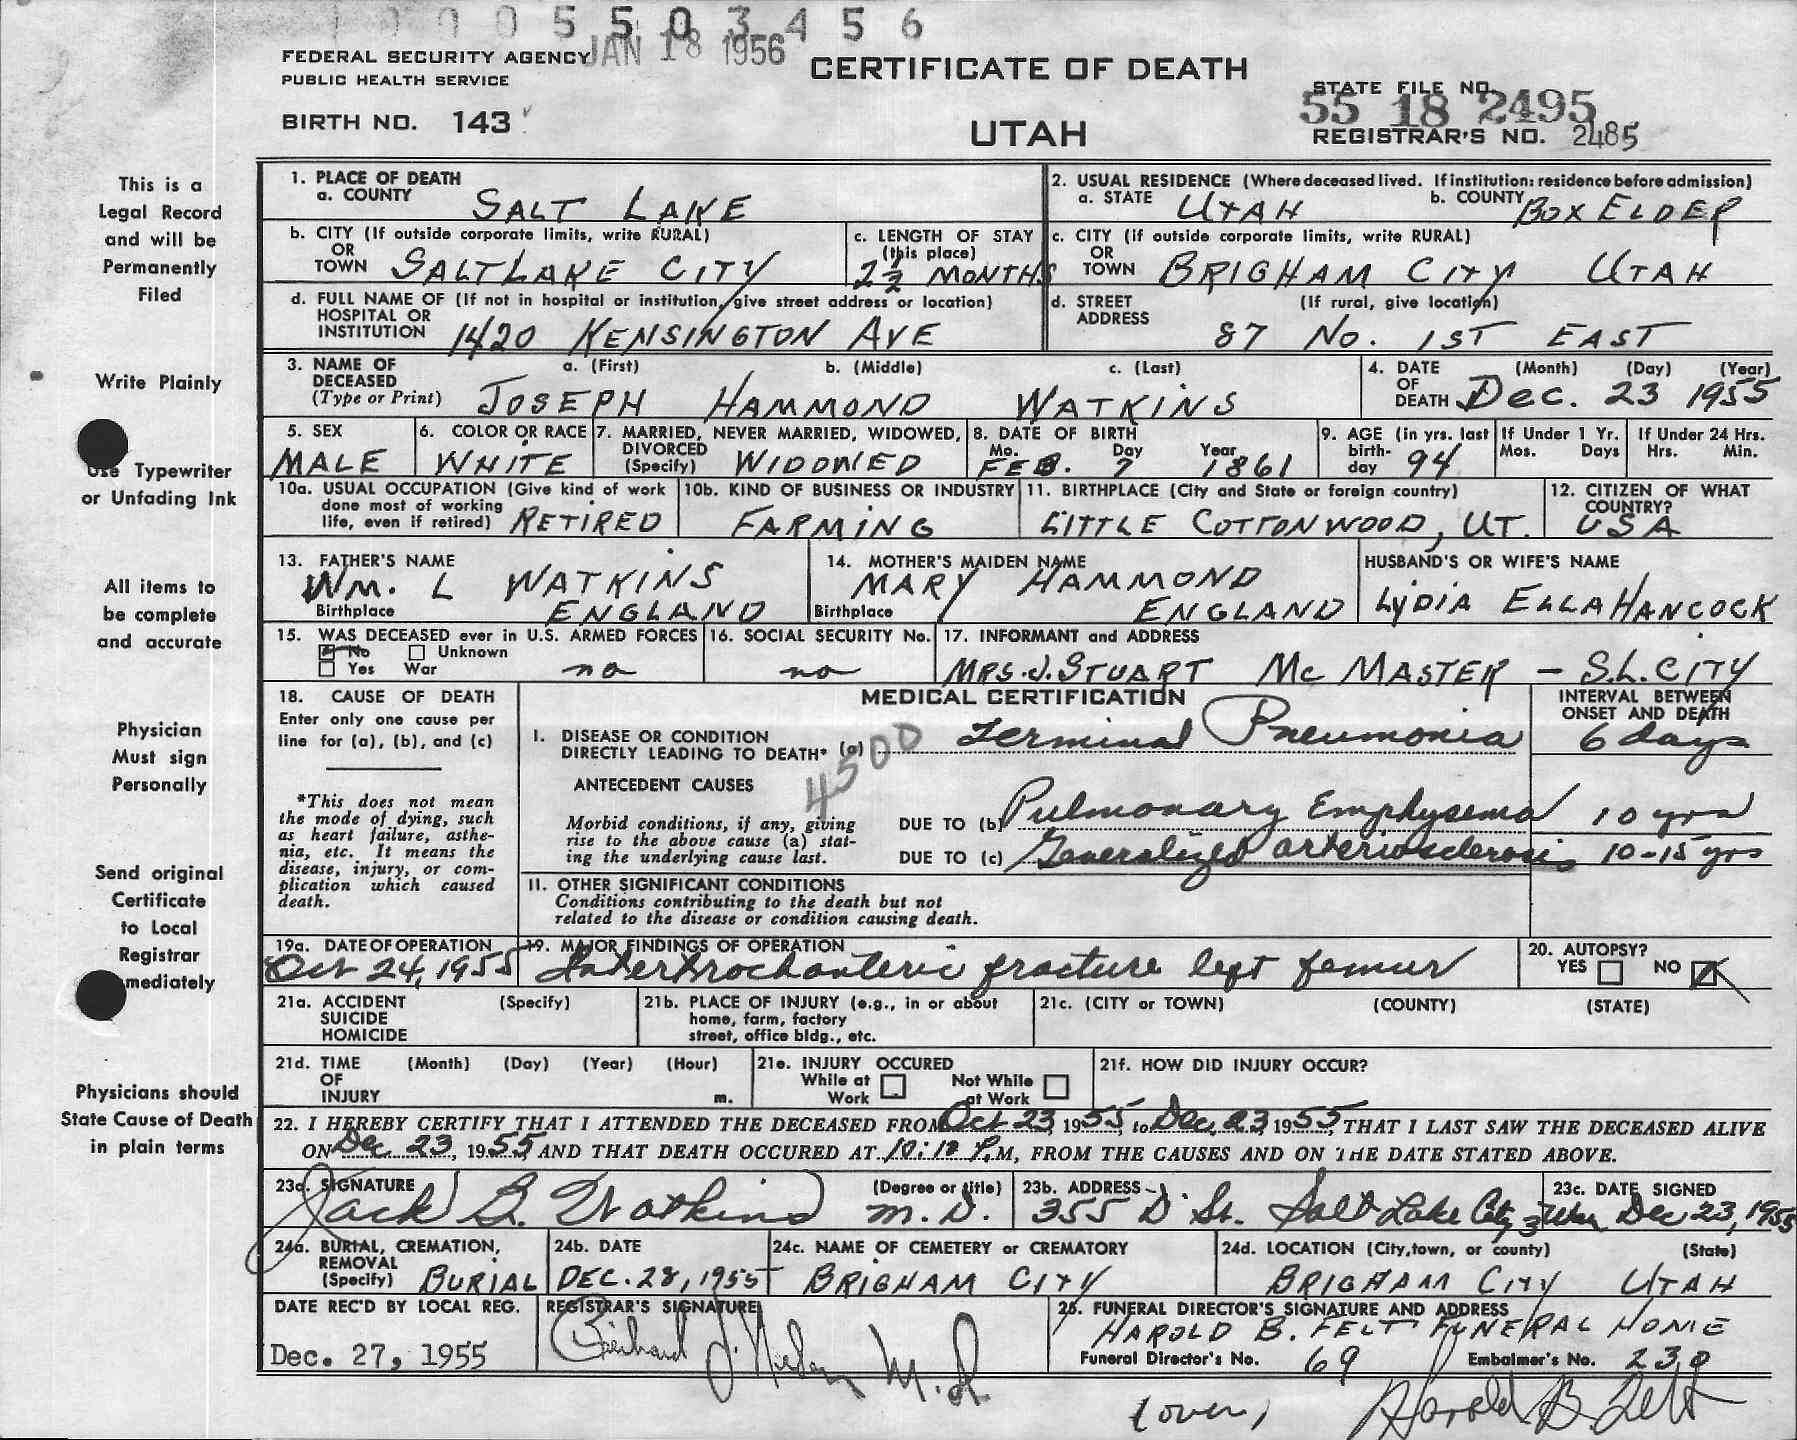 0 0 0 5 5 0 3 4 5 6
FEDERAL SECURITY AGENCY JAN 18 1956 CERTIFICATE OF DEATH
PUBLIC HEALTH SERVICE
STATE FILE NO.
55 18 2495
BIRTH NO. 143 UTAH REGISTRAR'S NO. 2485
This is a
Legal Record
and will be
Permanently
Filed
Write Plainly
Use Typewriter
or Unfading Ink
All items to
be complete
and accurate
Physician
Must sign
Personally
Send original
Certificate
to Local
Registrar
mediately
Physicians should
State Cause of Death
in plain terms
1. PLACE OF DEATH
a. COUNTY SALT LAKE
2. USUAL RESIDENCE (Where deceased lived. If institution: residence before admission)
a. STATE UTAH b. COUNTY BOX ELDER
b. CITY (If outside corporate limits, write RURAL)
OR
TOWN SALT LAKE CITY
c. LENGTH OF STAY
(this place)
2½ MONTHS
c. CITY (If outside corporate limits, write RURAL)
OR
TOWN BRIGHAM CITY UTAH
d. FULL NAME OF (If not in hospital or institution, give street address or location)
HOSPITAL OR
INSTITUTION 1420 KENSINGTON AVE
d. STREET (If rural, give location)
ADDRESS 87 NO. 1ST EAST
3. NAME OF a. (First) b. (Middle) c. (Last)
DECEASED
(Type or Print) JOSEPH HAMMOND WATKINS
4. DATE (Month) (Day) (Year)
OF
DEATH Dec. 23 1955
5. SEX
MALE
6. COLOR OR RACE
WHITE
7. MARRIED, NEVER MARRIED, WIDOWED,
DIVORCED
(Specify) WIDOWED
8. DATE OF BIRTH
Mo. Day Year
FEB. 7 1861
9. AGE (in yrs. last
birth-
day 94
If Under 1 Yr.
Mos. Days
If Under 24 Hrs.
Hrs. Min.
10a. USUAL OCCUPATION (Give kind of work
done most of working
life, even if retired) RETIRED
10b. KIND OF BUSINESS OR INDUSTRY
FARMING
11. BIRTHPLACE (City and State or foreign country)
LITTLE COTTONWOOD, UT.
12. CITIZEN OF WHAT
COUNTRY?
USA
13. FATHER'S NAME
WM. L WATKINS
Birthplace ENGLAND
14. MOTHER'S MAIDEN NAME
MARY HAMMOND
Birthplace ENGLAND
HUSBAND'S OR WIFE'S NAME
LYDIA ELLA HANCOCK
15. WAS DECEASED ever in U.S. ARMED FORCES
No Unknown
Yes War no
16. SOCIAL SECURITY No.
no
17. INFORMANT and ADDRESS
MRS. J. STUART MC MASTER - S.L. CITY
18. CAUSE OF DEATH
Enter only one cause per
line for (a), (b), and (c)
*This does not mean
the mode of dying, such
as heart failure, asthe-
nia, etc. It means the
disease, injury, or com-
plication which caused
death.
MEDICAL CERTIFICATION
INTERVAL BETWEEN
ONSET AND DEATH
I. DISEASE OR CONDITION
DIRECTLY LEADING TO DEATH* (a) Terminal Pneumonia 6 days
4500
ANTECEDENT CAUSES
Morbid conditions, if any, giving
rise to the above cause (a) stat-
ing the underlying cause last.
DUE TO (b) Pulmonary Emphysema 10 yrs
DUE TO (c) Generalized arteriosclerosis 10-15 yrs
II. OTHER SIGNIFICANT CONDITIONS
Conditions contributing to the death but not
related to the disease or condition causing death.
19a. DATE OF OPERATION
Oct 24, 1955
19. MAJOR FINDINGS OF OPERATION
Intertrochanteric fracture left femur
20. AUTOPSY?
YES NO
21a. ACCIDENT (Specify)
SUICIDE
HOMICIDE
21b. PLACE OF INJURY (e.g., in or about
home, farm, factory
street, office bldg., etc.
21c. (CITY or TOWN) (COUNTY) (STATE)
21d. TIME (Month) (Day) (Year) (Hour)
OF
INJURY m.
21e. INJURY OCCURED
While at Not While
Work at Work
21f. HOW DID INJURY OCCUR?
22. I HEREBY CERTIFY THAT I ATTENDED THE DECEASED FROM Oct 23, 1955, to Dec. 23, 1955, THAT I LAST SAW THE DECEASED ALIVE
ON Dec 23, 1955 AND THAT DEATH OCCURED AT 10:10 P.M, FROM THE CAUSES AND ON THE DATE STATED ABOVE.
23a. SIGNATURE (Degree or title)
Jack B. Watkins M.D.
23b. ADDRESS
355 D. St. Salt Lake City 3 Utah
23c. DATE SIGNED
Dec 23, 1955
24a. BURIAL, CREMATION,
REMOVAL
(Specify) BURIAL
24b. DATE
DEC. 28, 1955
24c. NAME OF CEMETERY or CREMATORY
BRIGHAM CITY
24d. LOCATION (City, town, or county) (State)
BRIGHAM CITY UTAH
DATE REC'D BY LOCAL REG.
Dec. 27, 1955
REGISTRAR'S SIGNATURE
M.D.
25. FUNERAL DIRECTOR'S SIGNATURE AND ADDRESS
HAROLD B. FELT FUNERAL HOME
Funeral Director's No. 69 Embalmer's No. 230
(over) Harold B. Felt